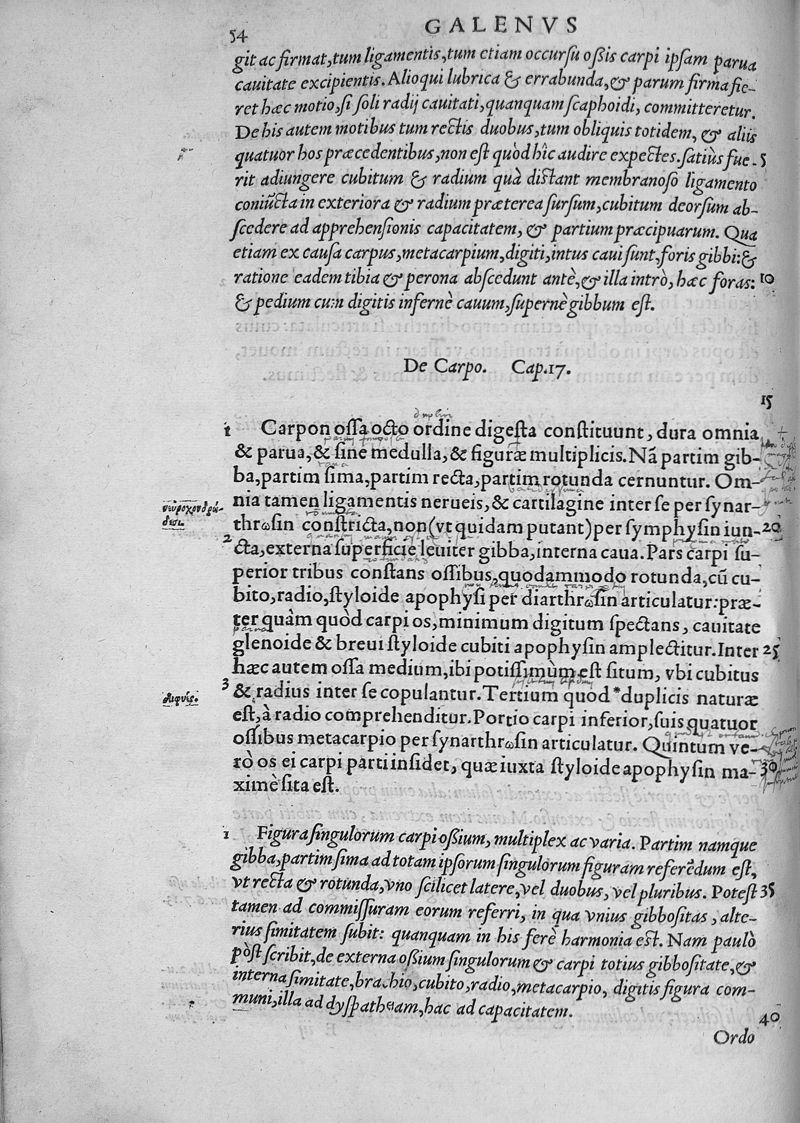 54
GALENVS
git ac firmat, tum ligamentis, tum etiam occursu oßis carpi ipsam parua
cauitate excipientis. Alioqui lubrica & errabunda, & parum firma fie-
ret hæc motio, si soli radij cauitati, quanquam scaphoidi, committeretur.
De his autem motibus tum rectis duobus, tum obliquis totidem, & aliis
quatuor hos præcedentibus, non est quòd hîc audire expectes. satiùs fue- 5
rit adiungere cubitum & radium quà distant membranoso ligamento
coniũcta in exteriora & radium præterea sursum, cubitum deorsum ab-
scedere ad apprehensionis capacitatem, & partium præcipuarum. Qua
etiam ex causa carpus, metacarpium, digiti, intus caui sunt, foris gibbi: &
ratione eadem tibia & perona abscedunt antè, & illa introˋ, hæc foras: 10
& pedium cum digitis infernè cauum, supernè gibbum est.
De Carpo. Cap.17.
15
1 Carpon ossa octo ordine digesta constituunt, dura omnia
& parua, & sine medulla, & figuræ multiplicis. Nã partim gib-
ba, partim sima, partim recta, partim rotunda cernuntur. Om-
nia tamen ligamentis nerueis, & cartilagine inter se per synar-
thrωsin constricta, non (vt quidam putant) per symphysin iun- 20
2 cta, externa superficie leuiter gibba, interna caua. Pars carpi su-
perior tribus constans ossibus, quodammodo rotunda, cũ cu-
bito, radio, styloide apophysi per diarthrωsin articulatur: præ-
ter quàm quòd carpi os, minimum digitum spectans, cauitate
glenoide & breui styloide cubiti apophysin amplectitur. Inter 25
hæc autem ossa medium, ibi potissimùm est situm, vbi cubitus
3 & radius inter se copulantur. Tertium quod *duplicis naturæ
διφυές.
est, à radio comprehenditur. Portio carpi inferior, suis quatuor
ossibus metacarpio per synarthrωsin articulatur. Quintum ve-
rò os ei carpi parti insidet, quæ iuxta styloide apophysin ma- 30
ximè sita est.
1 Figura singulorum carpi oßium, multiplex ac varia. Partim namque
gibba, partim sima ad totam ipsorum singulorum figuram referẽdum est,
vt recta & rotunda, vno scilicet latere, vel duobus, vel pluribus. Potest 35
tamen ad commissuram eorum referri, in qua vnius gibbositas, alte-
rius simitatem subit: quanquam in his ferè harmonia est. Nam paulò
pòst scribit, de externa oßium singulorum & carpi totius gibbositate, &
interna simitate, brachio, cubito, radio, metacarpio, digitis figura com-
muni, illa ad dyspatheiam, hac ad capacitatem.
40
Ordo